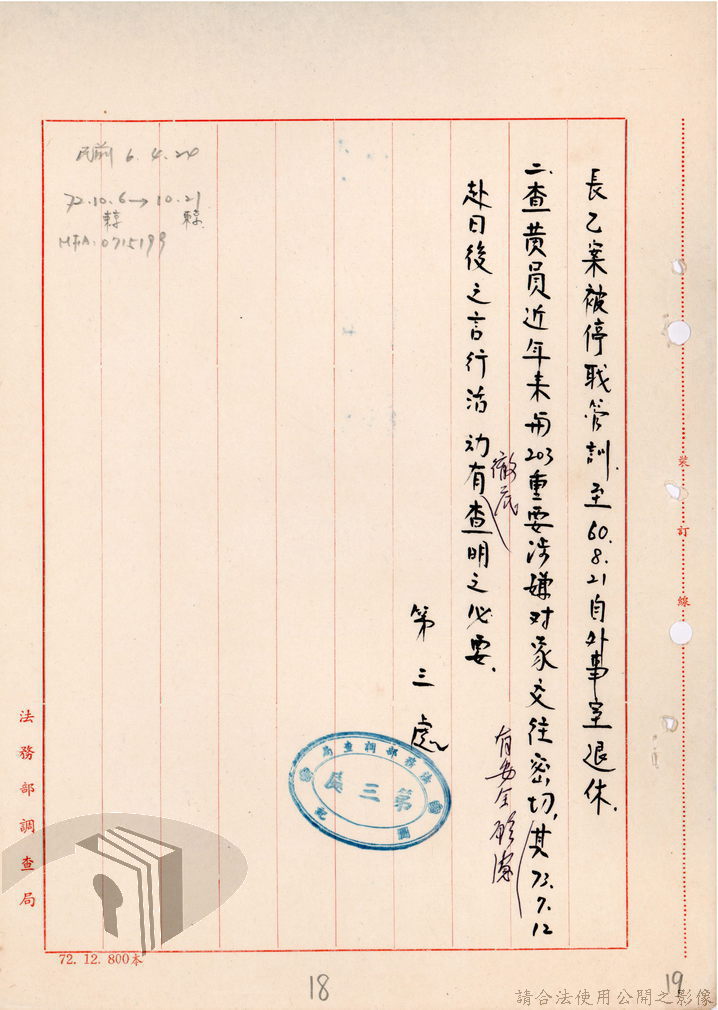 長乙案被停職管訓.至60.8.21自外事室退休.
二.查黄員近年来与203重要涉嫌对象交往密切,其73.7.12
有安全顧慮
赴日後之言行活动有查明之必要.
徹底
第三處
法務部調查局
第三處
圖記
民前 6.4.24
72.10.6→10.21
裝訂線
法務部調查局
72. 12. 800本
18
19
請合法使用公開之影像